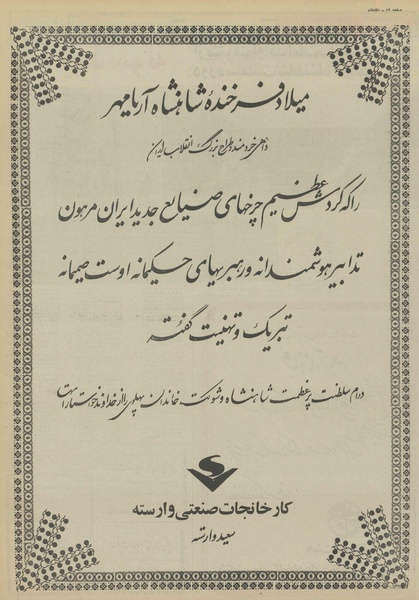 صفحه ۲۹ - اطلاعات
میلاد فرخندهٔ شاهنشاه آریامهر
داهی خردمند و طراح بزرگ انقلاب ایران
را که گردش عظیم چرخهای صنایع جدید ایران مرهون
تدابیر هوشمندانه و رهبریهای حکیمانه اوست صمیمانه
تبریک و تهنیت گفته
دوام سلطنت پرعظمت شاهنشاه و شوکت خاندان پهلوی را از خداوند خواستار است
کارخانجات صنعتی وارسته
سعید وارسته